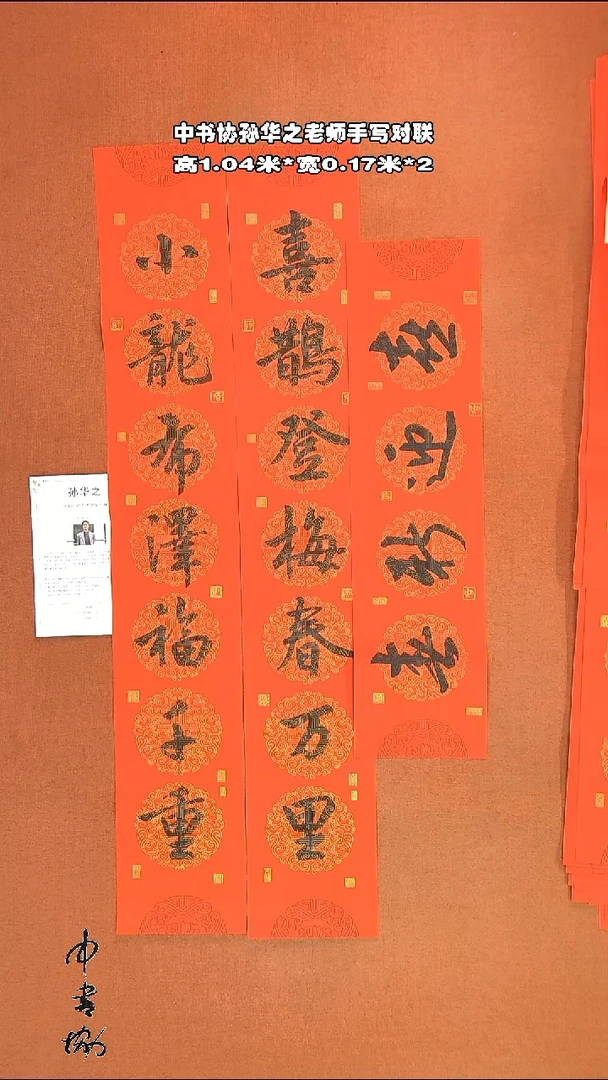 中书协孙华之老师手写对联
高1.04米*宽0.17米*2
喜鵲登梅春万里
小龍布澤福千重
喜迎新春
孙华之
中書協